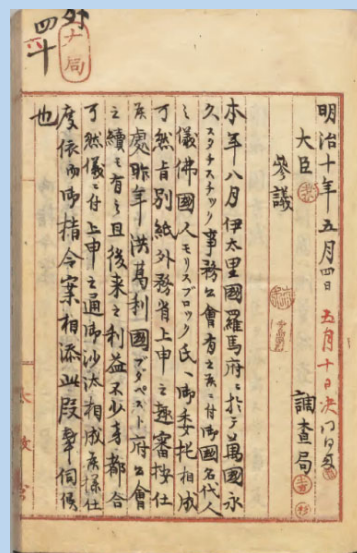 外
四十
大局
明治十年五月四日 五月十日決
大臣
參議
調査局
本年八月伊太里國羅馬府ニ於テ萬國永
久スタチスチック事務公會有之候ニ付御國名代人
之儀佛國人モリスブロック氏ヘ御委托相成
可然旨別紙外務省上申之趣審按仕
候處昨年洪葛利國ブダペスト府公會
之續モ有之且後来之利益不少旁都合
可然儀ニ付上申之通御沙汰相成候様仕
度依而御指令案相添此段奉伺候
也
太政官